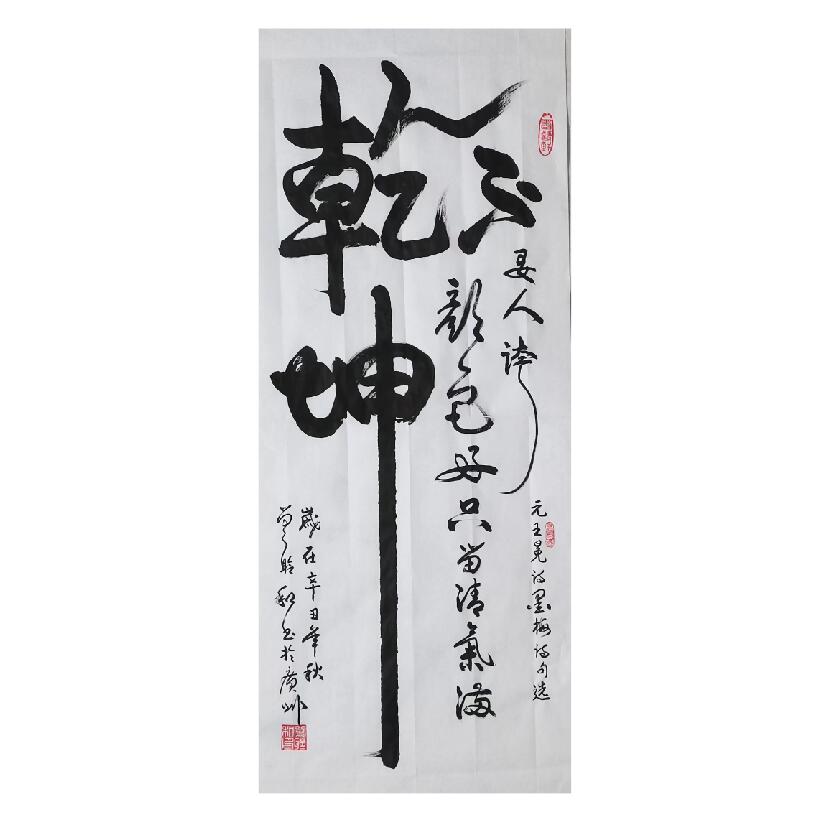 不要人誇
顏色好只留清氣滿
乾坤
元王冕詩墨梅詩句選
歲在辛丑年秋
書於廣州